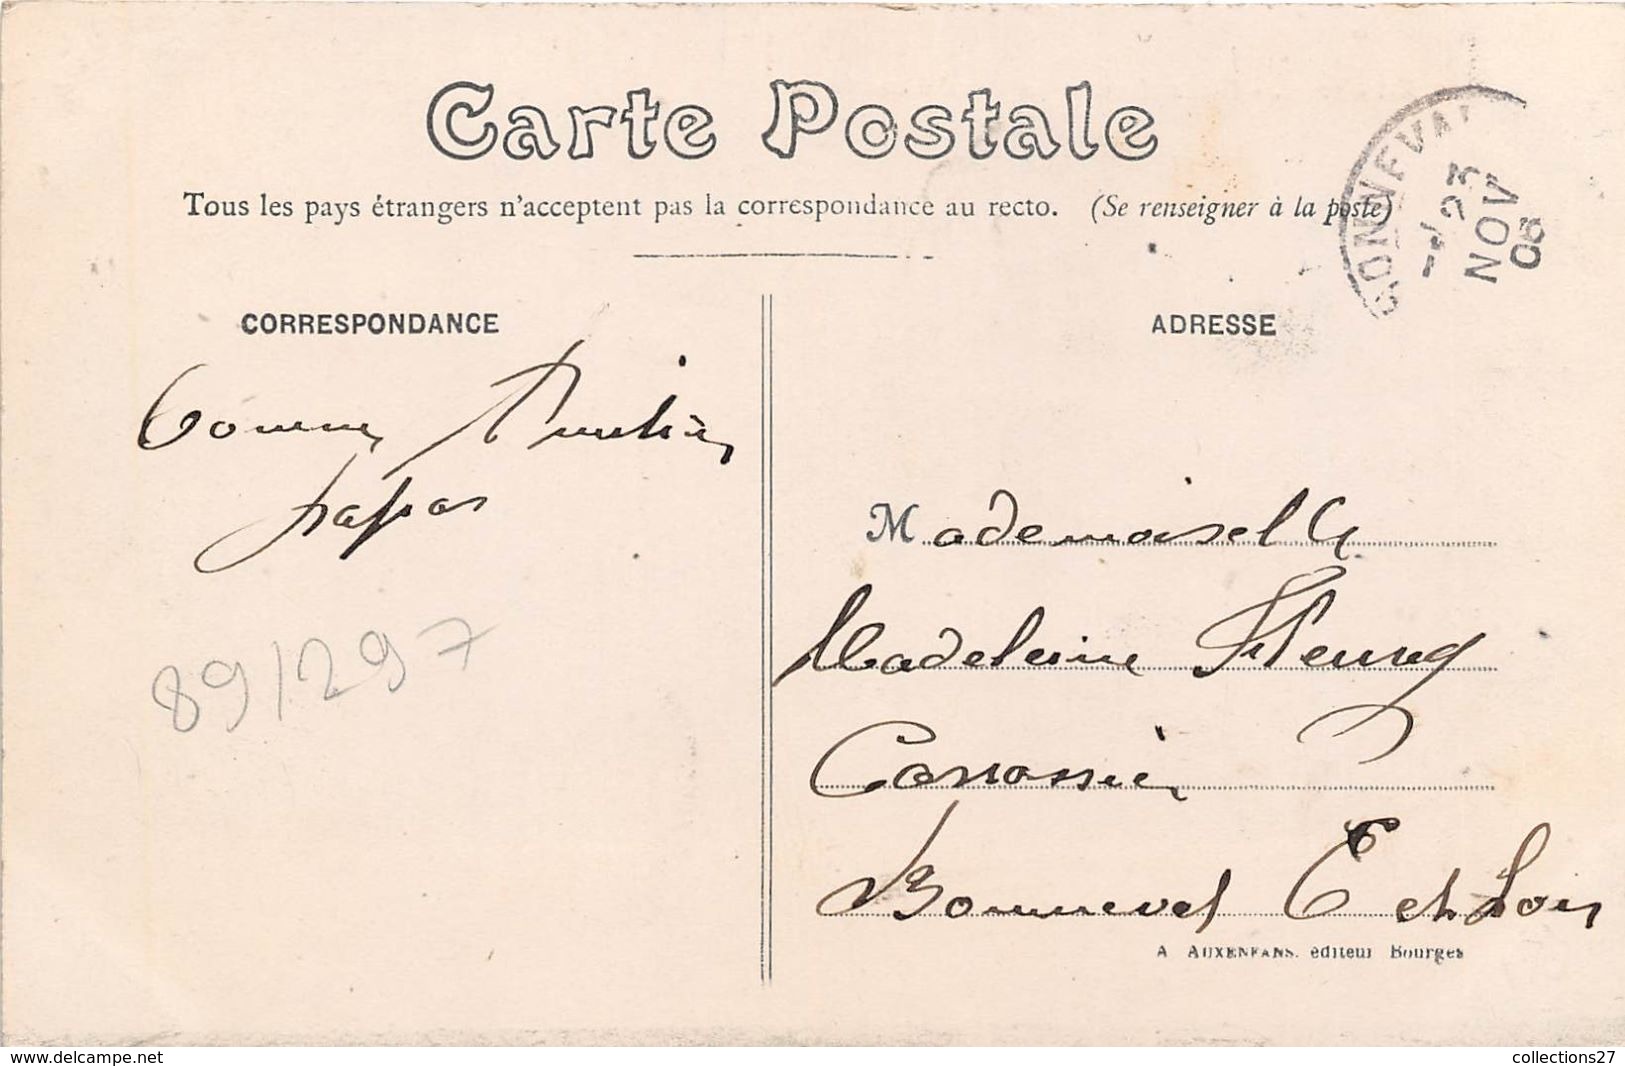 Carte Postale
Tous les pays étrangers n'acceptent pas la correspondance au recto. (Se renseigner à la poste)
BONNEVAL
23
NOV
06
CORRESPONDANCE
ADRESSE
papa
89/297
Mademoiselle
Madeleine Fleury
Bonneval E et Loir
A AUXENFANS. éditeur Bourges
www.delcampe.net
collections27